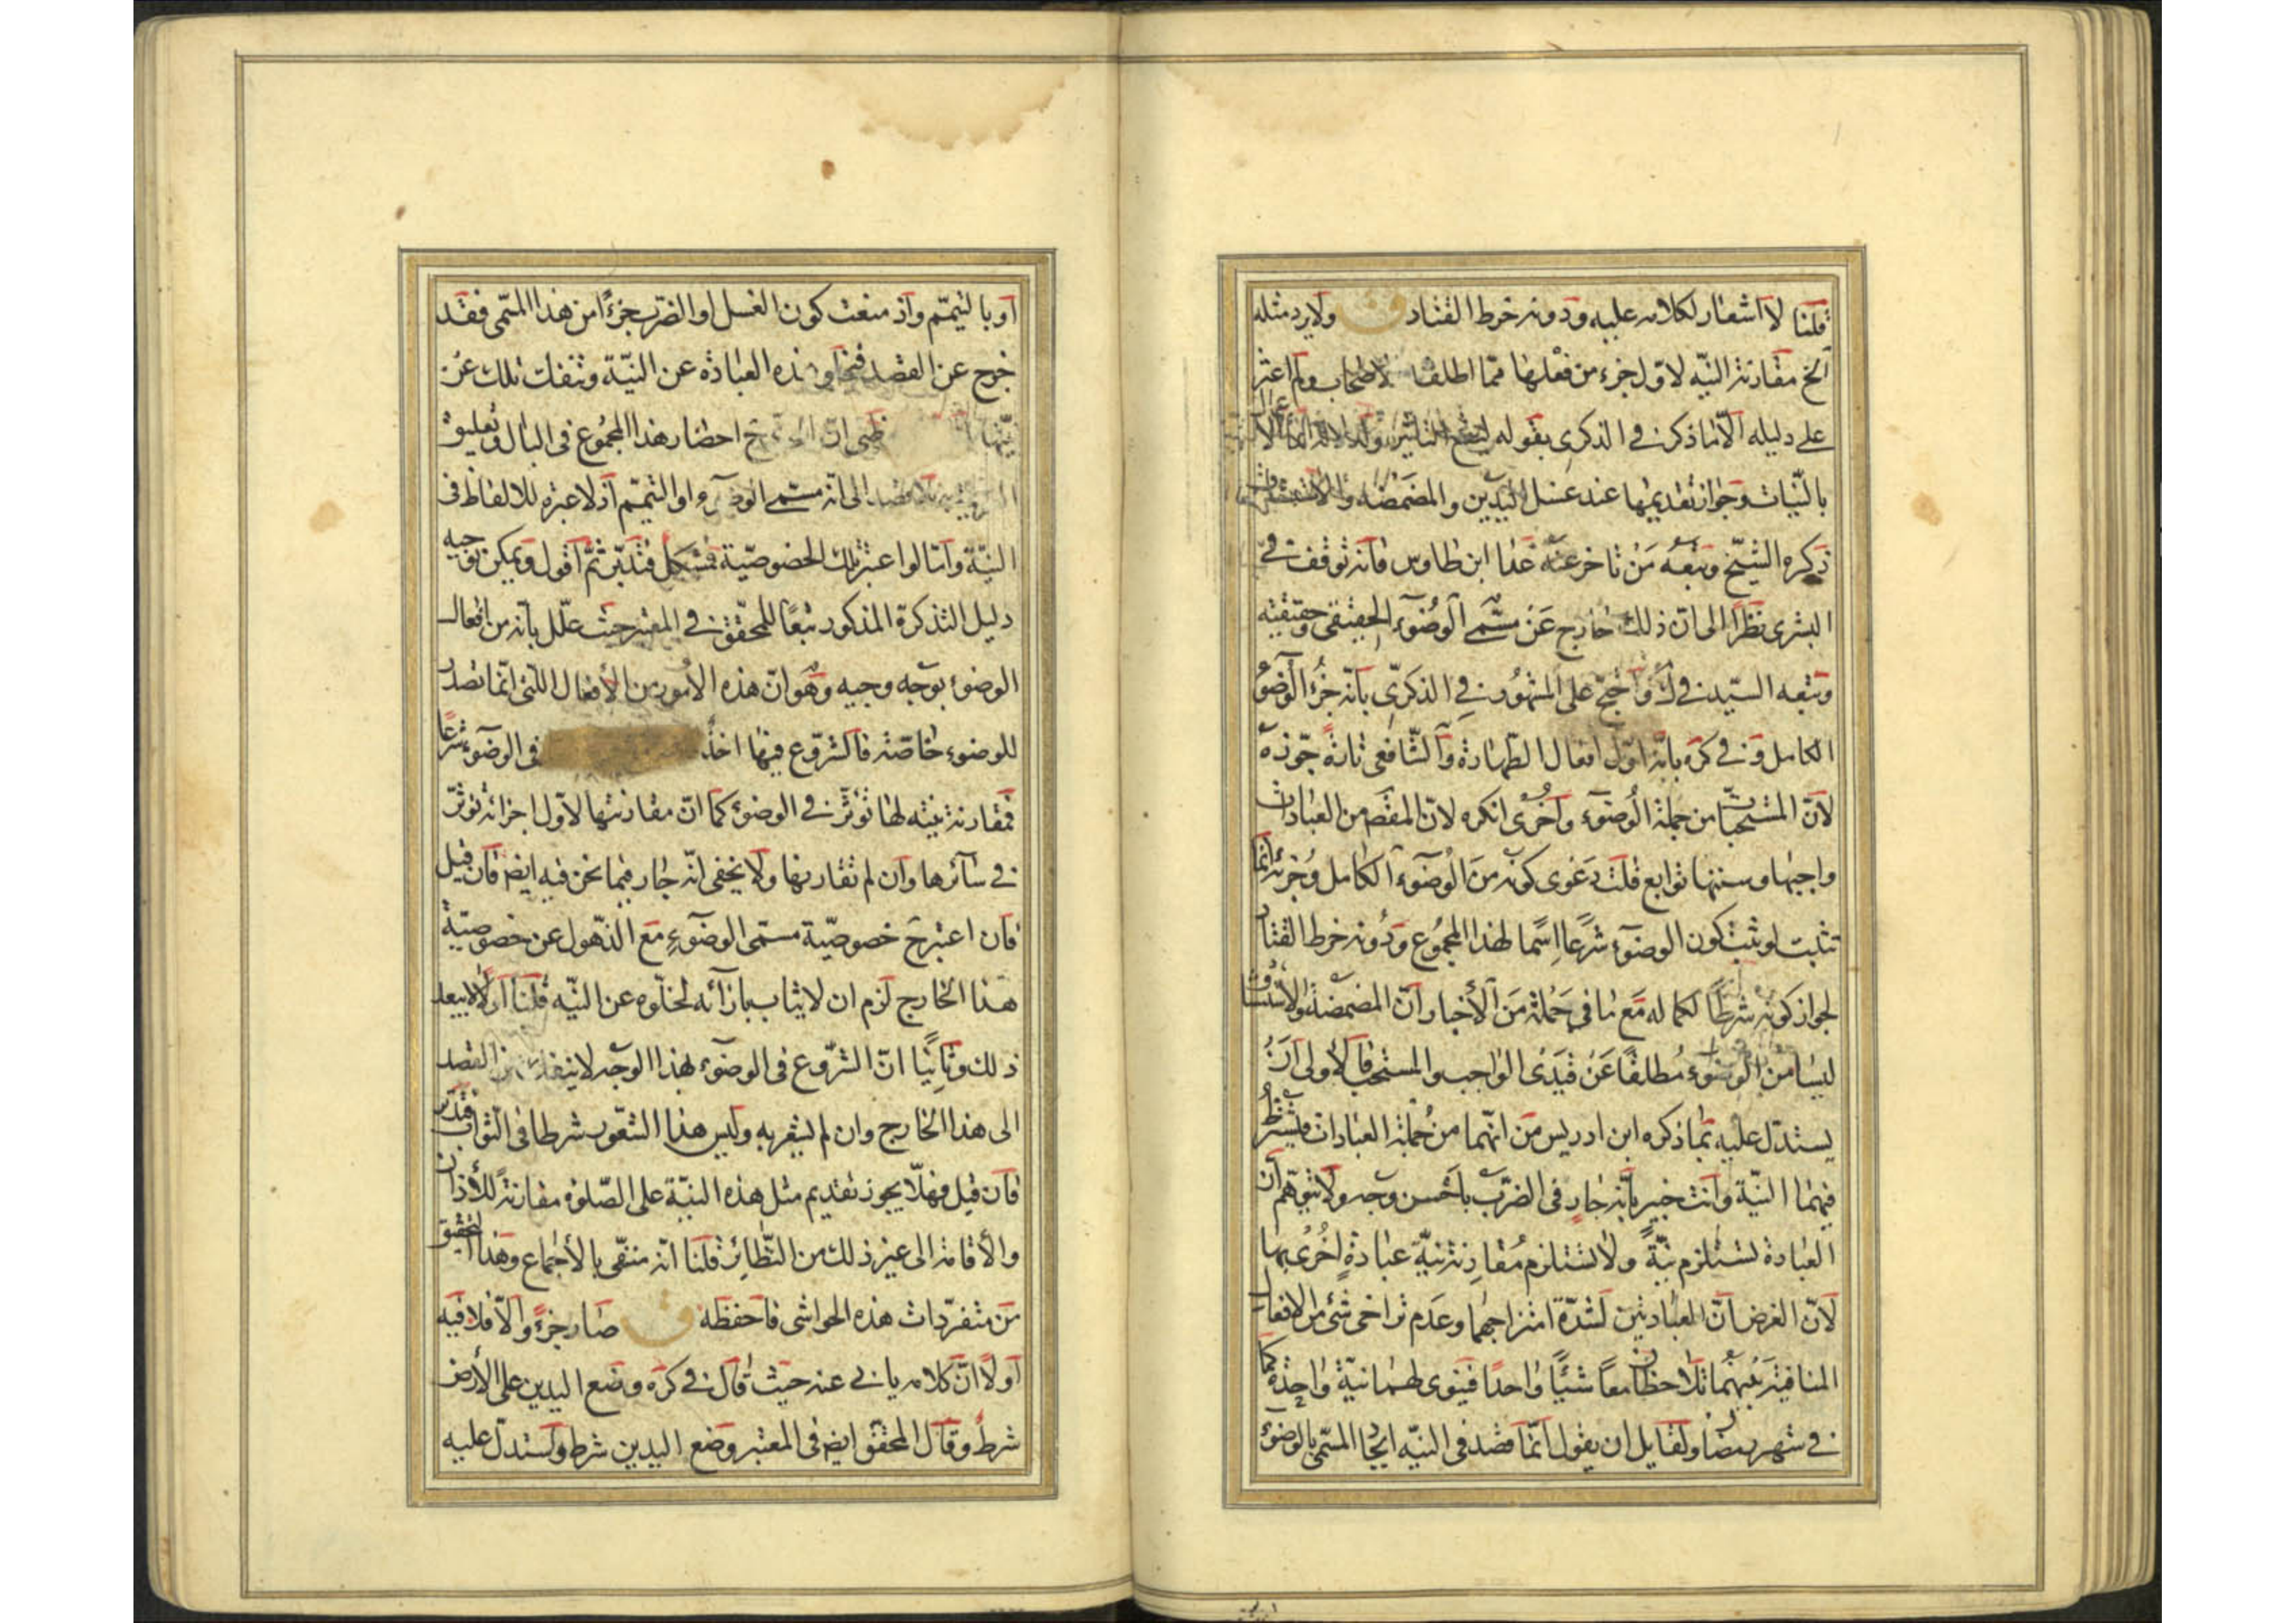 قلنا لا اشعار لكلامه عليه ودونه خرط القتاد ق ولا يرد مثله
الخ مقارنة النيّه لاوّل جزء من فعلها ممّا اطلقه الاصحاب ولم اعثر
على دليله الّا ما ذكره في الذكرى بقوله
بالنّيات وجواز تقديمها عند غسل اليدين والمضمضة والاستنشاق
ذكره الشيّخ وتبعه من تاخر عنه عدا ابن طاوس فانه توقف في
البشرى نظرًا الى انّ ذلك خارج عن مسمّى الوضوء الحقيقى وحقيقته
وتبعه السيّد في واحتج على المشهور في الذكرىّ بانّه جزء الوضوء
الكامل وفي كره بانّه اوّل افعال الطّهارة والشّافعى تارة جوّزه
لانّ المستحبّات من جملة الوضوء واخرى انكره لانّ المقصّ من العبادات
واجبها وسننها توابع قلت دعوى كونه من الوضوء الكامل وجزئه انما
تثبت لو ثبت كون الوضوء شرعًا اسما لهذا المجموع ودونه خرط القتاد
لجواز كونه شرطًا لكماله مع ما في جملة من الأخبار انّ المضمضة والاستنشاق
ليسا من الوضوء مطلقًا عن قيدى الواجب والمستحب فالاولى ان
يستدّل عليه بما ذكره ابن ادريس من انّهما من جملة العبادات فيشترط
فيهما النيّة وانت خبير بانّه جار في الضرب باحسن وجه ولا يتوهّم انّ
العبادة تستلزم نيّةً ولا تستلزم مقارنة نيّة عبادةٍ اخرى بها
لانّ الغرض انّ العبادتين لشدّة امتزاجهما وعدم تراخى شئ من الافعال
المنافية بينهما تلاحظان معًا شيئًا واحدًا فينوى لهما نيّة واحدة كما
في شهر رمضان ولقايل ان يقول انّما قصد في النيّه ايجاد المسمّى بالوضوء
او بالتيمّم واذ منعت كون الغسل او الضرب جزءًا من هذا المسمّى فقد
خرج عن القصد هذه العبادة عن النيّة وتنفك تلك عن
نيّتها انّ احضار هذا المجموع في البال وتعليق
الى انه مسمّى الوضوء او التيمّم اذ لا عبرة للالفاظ في
النيّة وامّا لو اعتبر تلك الخصوصيّة فمشكل فتدبّر ثمّ اقول ويمكن توجيه
دليل التذكرة المذكور تبعًا للمحقّق في المعتبر حيث علّل بانه من افعال
الوضوء بوجه وجيه وهو انّ هذه الامور من الأفعال اللتى انّما تصدر
للوضوء خاصّة فالشروّع فيها اخذ في الوضوء شرعًا
فمقارنة نيته لها تؤثر في الوضوء كما انّ مقارنتها لاوّل اجزائه تؤثرّ
في سآئرها وان لم تقارنها ولا يخفى انّه جار فيما نحن فيه ايض فان قيل
فان اعتبر خصوصيّة مسمّى الوضوء مع الذّهول عن خصوصيّة
هذا الخارج لزم ان لا يثاب بازآئه لخلّوه عن النيّه قلنا اولًا لا يبعد
ذلك وثانيًا انّ الشرّوع في الوضوء بهذا الوجه لا ينفك عن القصد
الى هذا الخارج وان لم يشعر به وليس هذا الشعور شرطا في الثواب فتدبّر
فان قيل فهلّا يجوز تقديم مثل هذه النيّة على الصّلوة مقارنة للأذان
والأقامة الى غير ذلك من النظّائر قلنا انّه منتفى بالأجماع وهذا التحقيق
من متفردّات هذه الحواشى فاحفظه ق صار جزءً والّا فلا فيه
اولًا انّ كلامه يابى عنه حيث قال في كره وضع اليدين على الأرض
شرط وقال المحقق ايض في المعتبر وضع اليدين شرط واستدلّ عليه